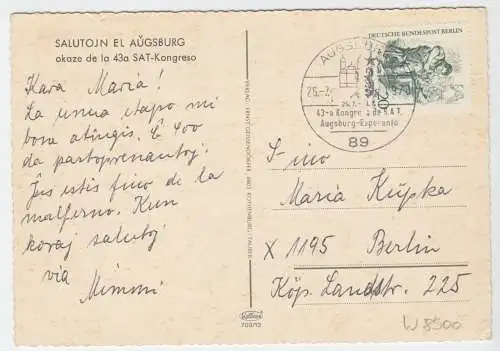 SALUTOJN EL AŬGSBURG
okaze de la 43a SAT-Kongreso
Kara Maria!
La unua etapo mi
bone atingis. Ĉ 400
da partoprenantoj.
Ĵus estis fino de la
malfermo. Kun
koraj salutoj
via
Mimmi
DEUTSCHE BUNDESPOST BERLIN
AUGSBURG
43-a Kongreso de S.A.T.
Augsburg-Esperanto
89
F-ino
Maria Kupka
X 1195 Berlin
Köp. Landstr. 225
709/12
W 8500